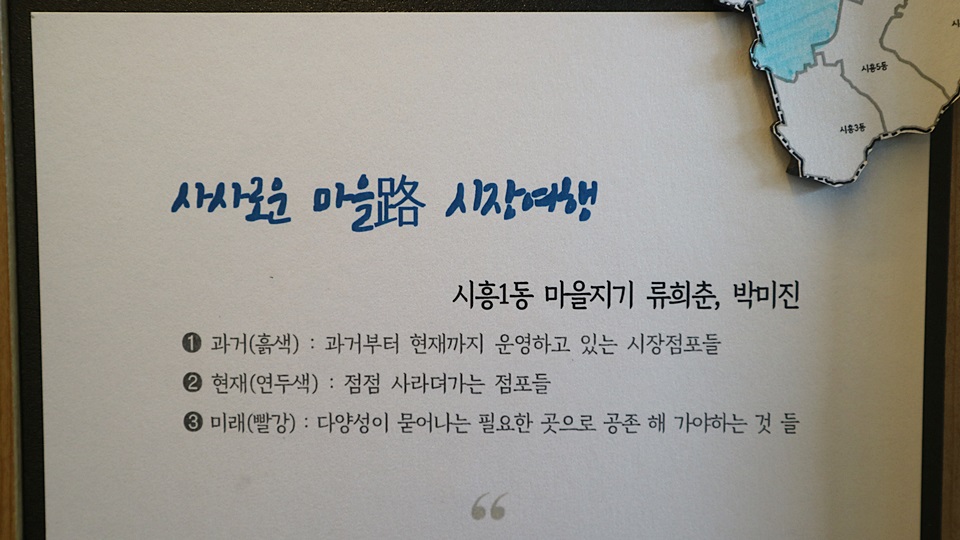 시흥5동
시흥3동
사사로운 마을路 시장여행
시흥1동 마을지기 류희춘, 박미진
❶ 과거(흙색) : 과거부터 현재까지 운영하고 있는 시장점포들
❷ 현재(연두색) : 점점 사라뎌가는 점포들
❸ 미래(빨강) : 다양성이 묻어나는 필요한 곳으로 공존 해 가야하는 것 들
“